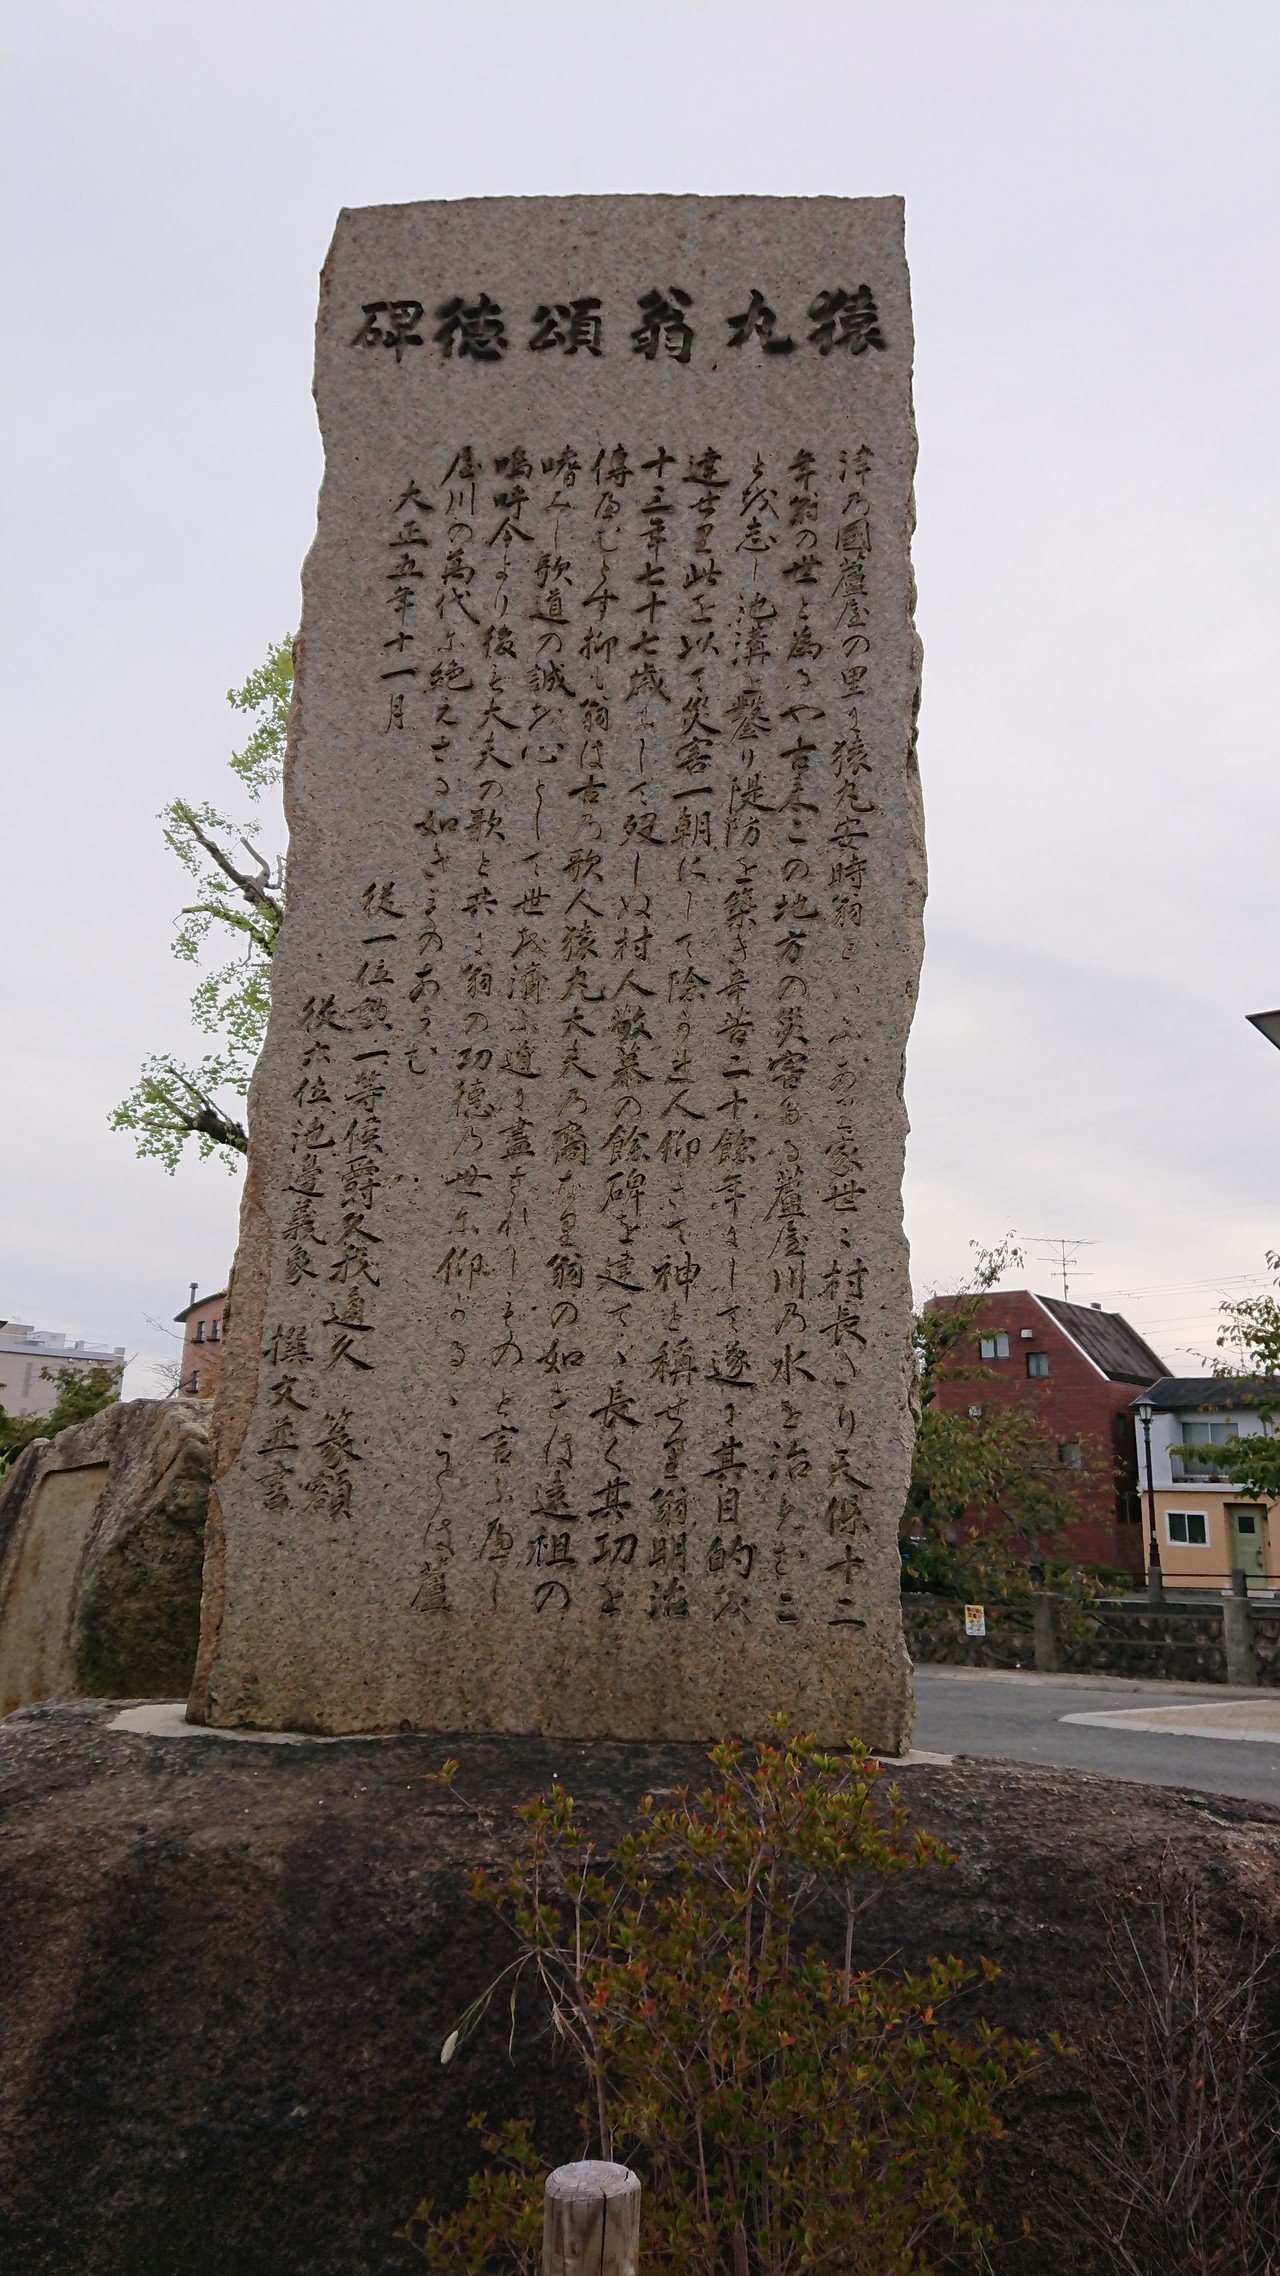 猿丸翁頌徳碑
津乃國蘆屋の里に猿丸安時翁といふあり家世〻村長たり天保十二
年翁の世と為るや古来この地方の災害たる蘆屋川乃水を治めむこ
とを志し池溝を鑿り隄防を築き辛苦二十餘年にして遂に其目的を
達せり此を以て災害一朝にして除かれ人仰きて神と稱せり翁明治
十三年七十七歳にして歿しぬ村人敬慕の餘碑を建て〻長く其功を
傳へむとす抑も翁は古乃歌人猿丸大夫乃裔なり翁の如きは遠祖の
嗜みし歌道の誠を心として世を濟ふ道に盡されしものと言ふへし
嗚呼今より後も大夫の歌と共に翁の功徳乃世に仰かるゝことは蘆
屋川の萬代に絶えさる如きものあらむ
大正五年十一月
従一位勲一等侯爵久我通久 篆額
従六位池邉義象 撰文並書